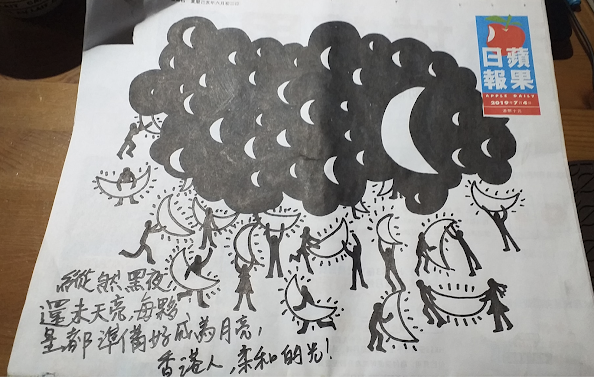 蘋果
日報
APPLE DAILY
2019年7月4日
縱然黑夜
還未天亮，每夥
星都準備好成為月亮，
香港人，柔和的光！